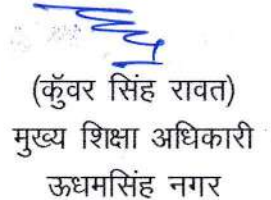 (कुँवर सिंह रावत)
मुख्य शिक्षा अधिकारी
ऊधमसिंह नगर